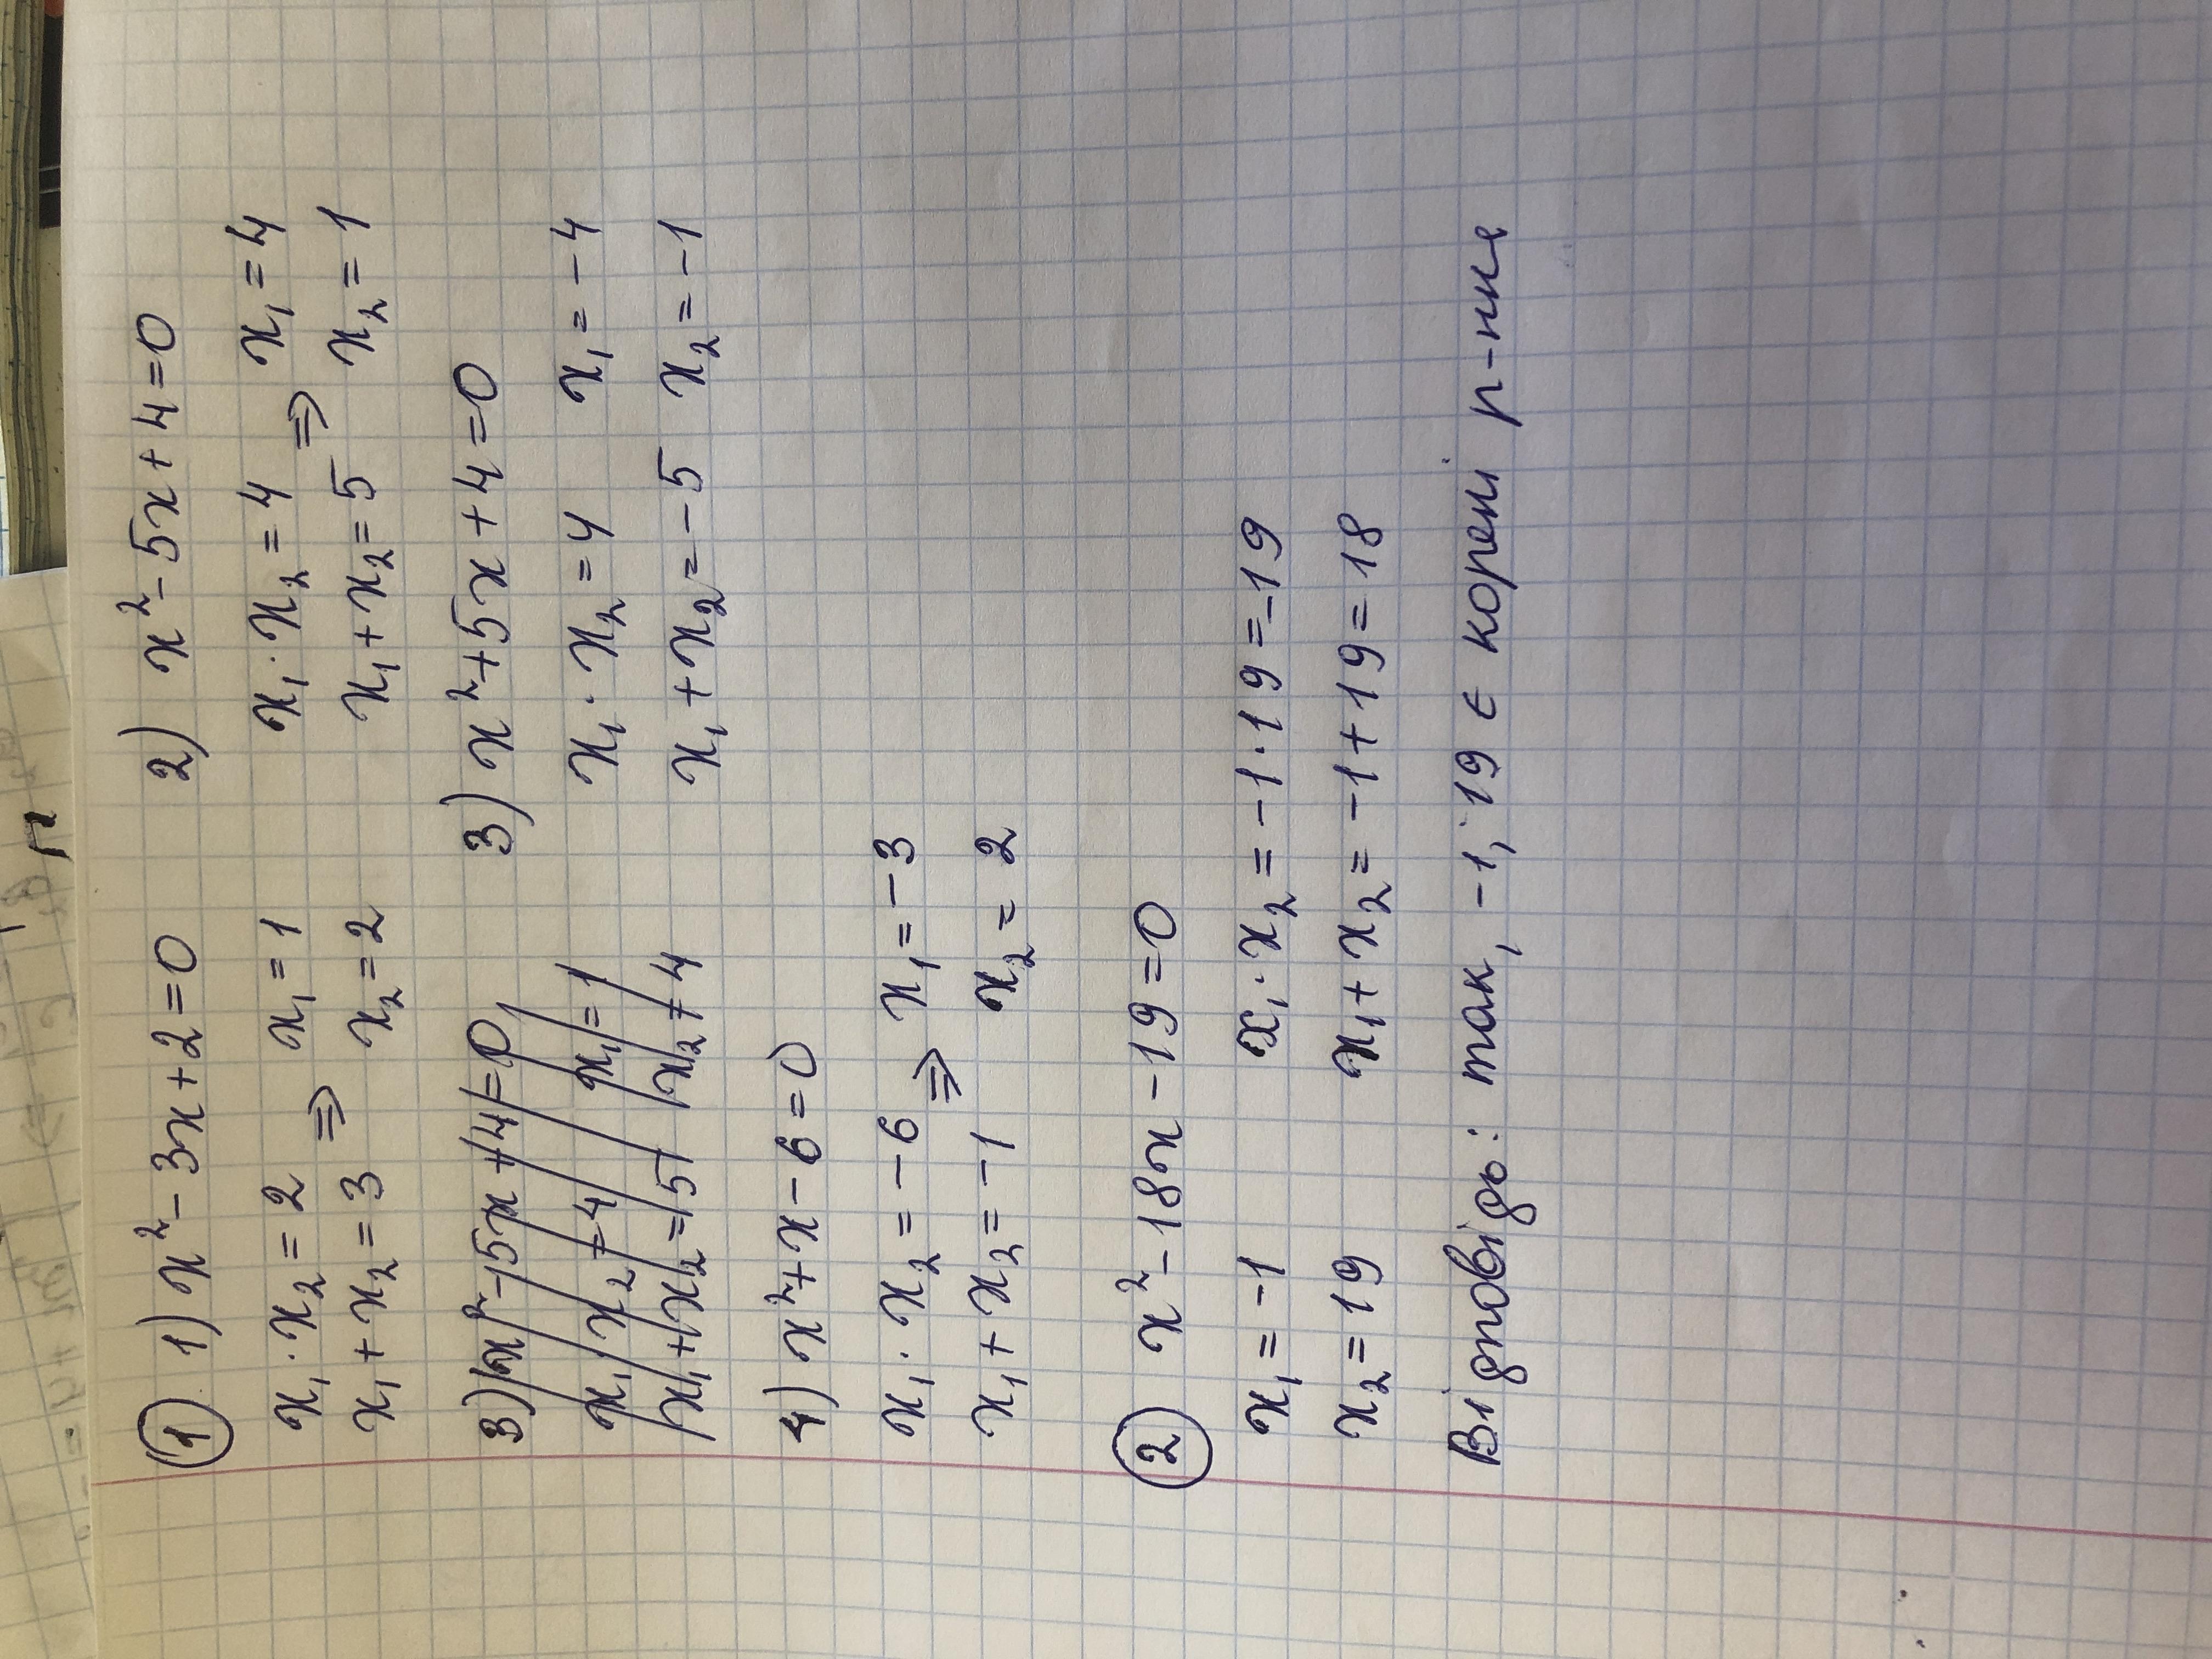 ① 1) x²-3x+2=0
x₁·x₂=2 ⇒ x₁=1
x₁+x₂=3 x₂=2
2) x²-5x+4=0
x₁·x₂=4 ⇒ x₁=4
x₁+x₂=5 x₂=1
3) x²-5x+4=0
x₁ x₂=4 x₁=1
x₁+x₂=5 x₂=4
3) x²+5x+4=0
x₁·x₂=4 x₁=-4
x₁+x₂=-5 x₂=-1
4) x²+x-6=0
x₁·x₂=-6 ⇒ x₁=-3
x₁+x₂=-1 x₂=2
② x²-18x-19=0
x₁=-1 x₁·x₂=-1·19=-19
x₂=19 x₁+x₂=-1+19=18
Відповідь: так, -1; 19 є корені р-ння